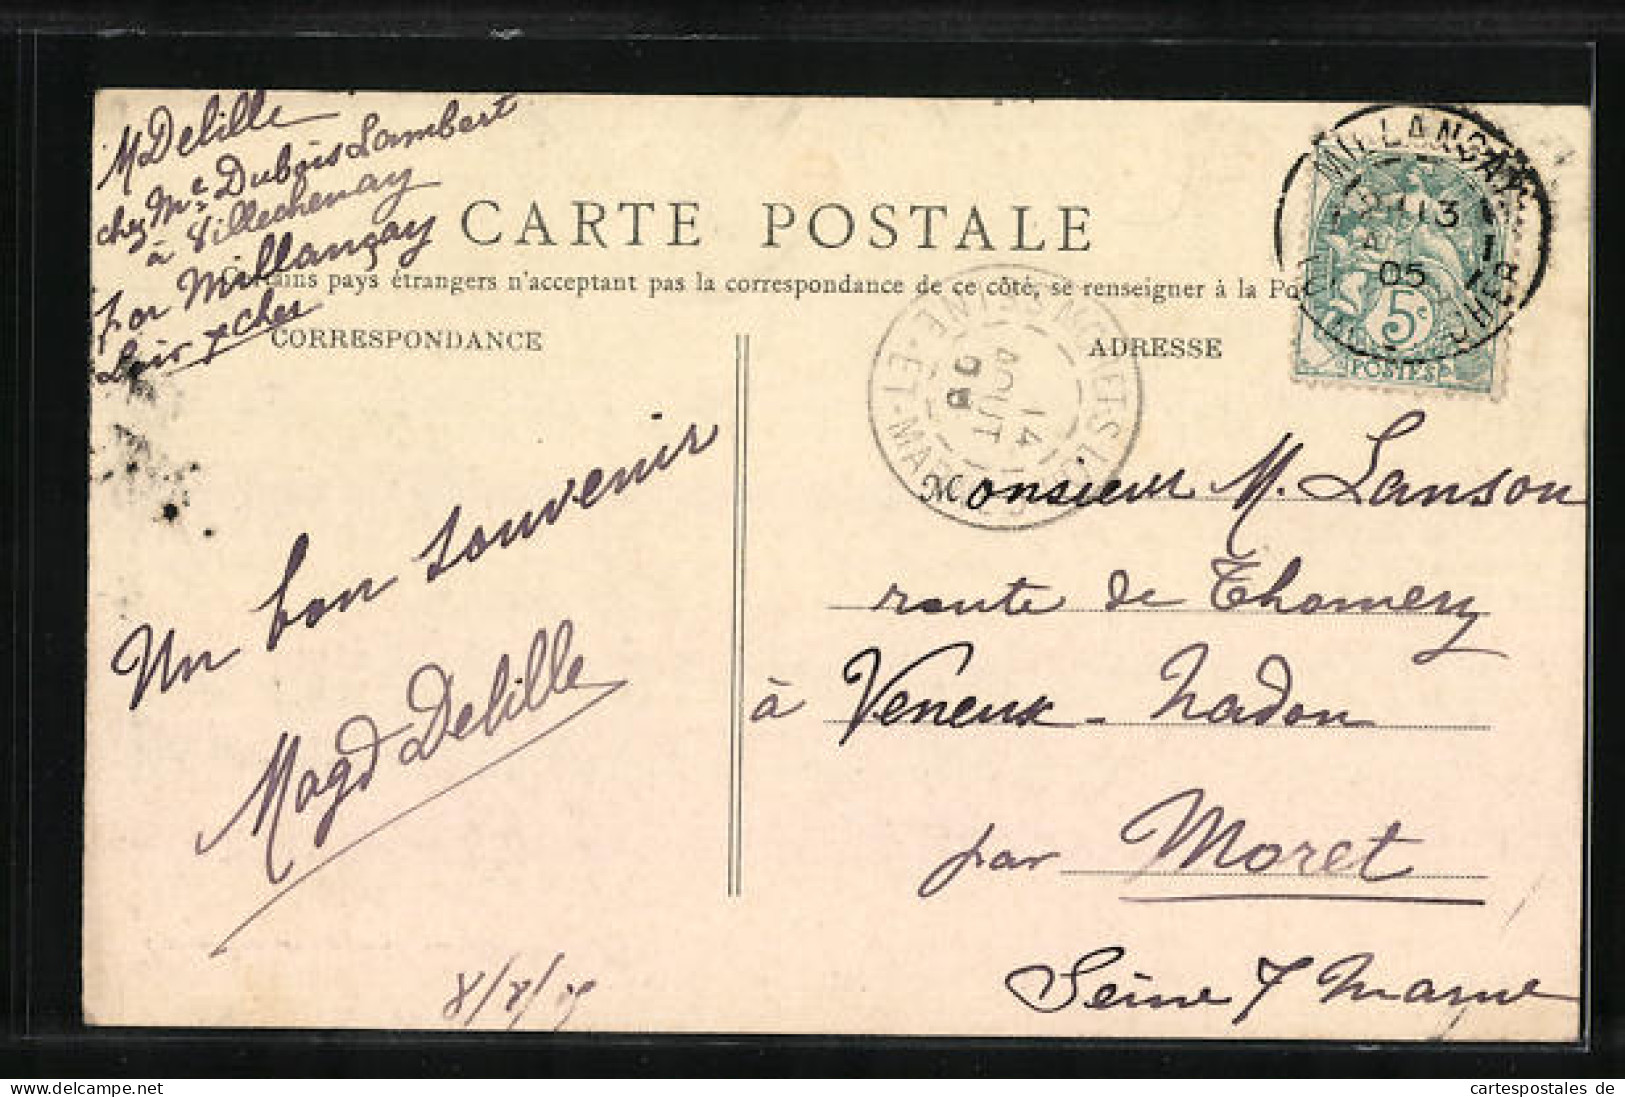 M Delille
chez Mme Dubois Lambert
à Villechenay
par Millançay
Loir & Cher
CARTE POSTALE
pays étrangers n'acceptant pas la correspondance de ce côté, se renseigner à la
CORRESPONDANCE
ADRESSE
MILLANÇAY
13
05
LOIR-ET-CHER
5c
POSTES
SEINE-ET-MARNE
14
AOUT
05
Un bon souvenir
Magd Delille
Monsieur M. Lanson
route de Thomery
à Veneux-Nadon
par Moret
Seine & Marne
cartespostales de